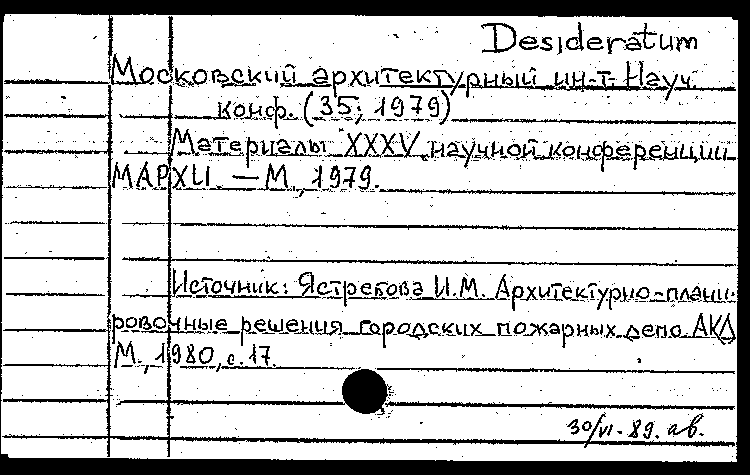 Desideratum
Московский архитектурный ин-т. Науч.
конф. (35; 1979)
Материалы XXXV научной конференции
МАРХИ. — М., 1979.
Источник: Ястребова И.М. Архитектурно-плани-
ровочные решения городских пожарных депо. АКД
М., 1980, с. 17.
30/VI-89. ав.